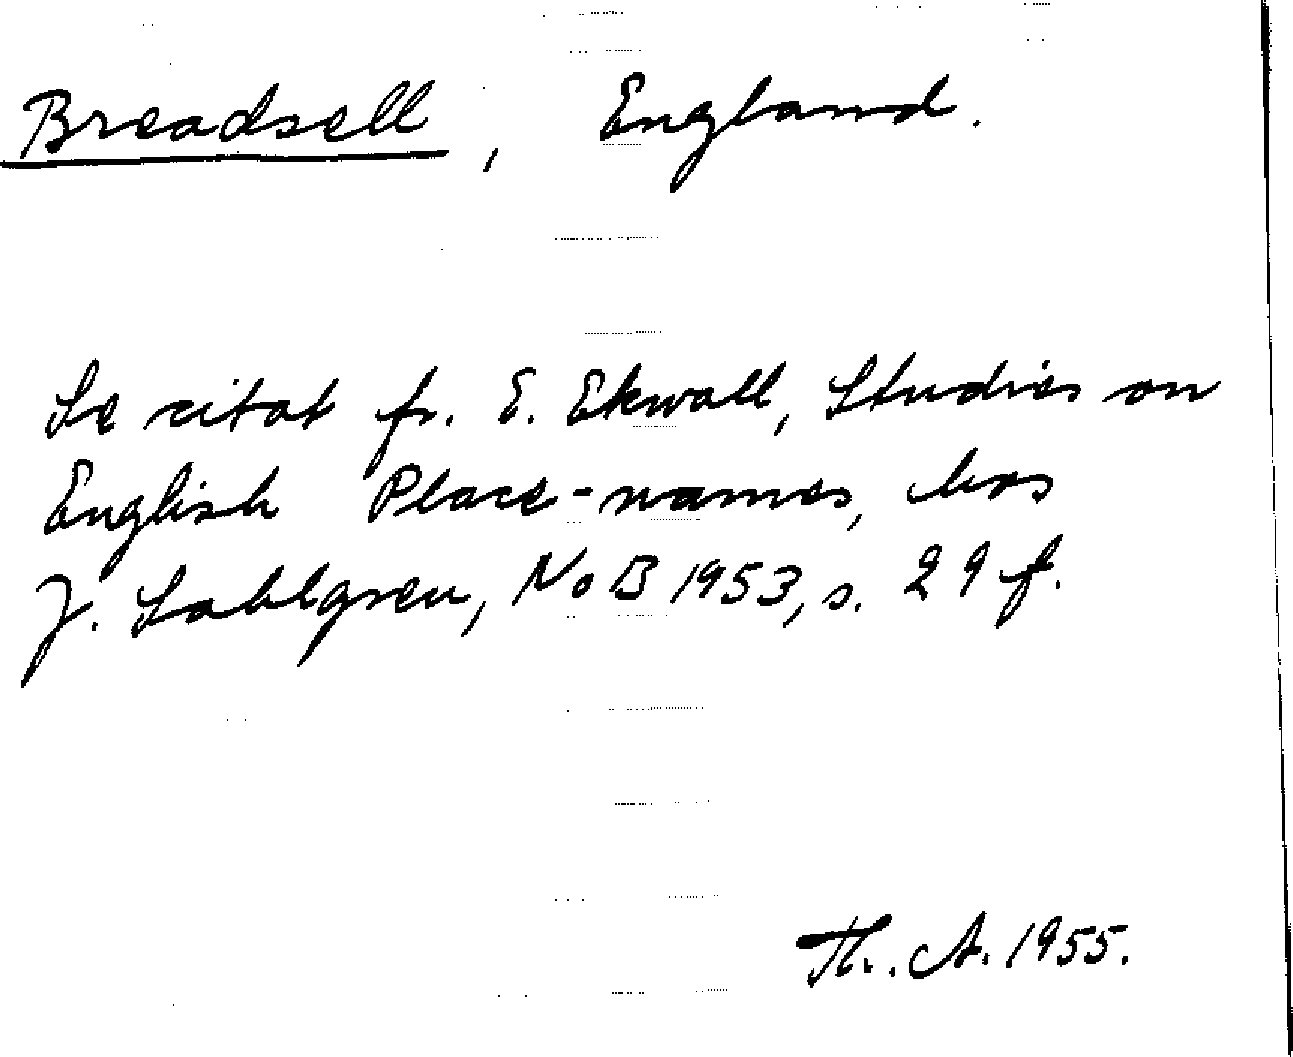 Breadsell, England.
Se citat fr. E. Ekwall, Studies on
English Place-names, hos
J. Sahlgren, NoB 1953, s. 29 f.
Th. A. 1955.